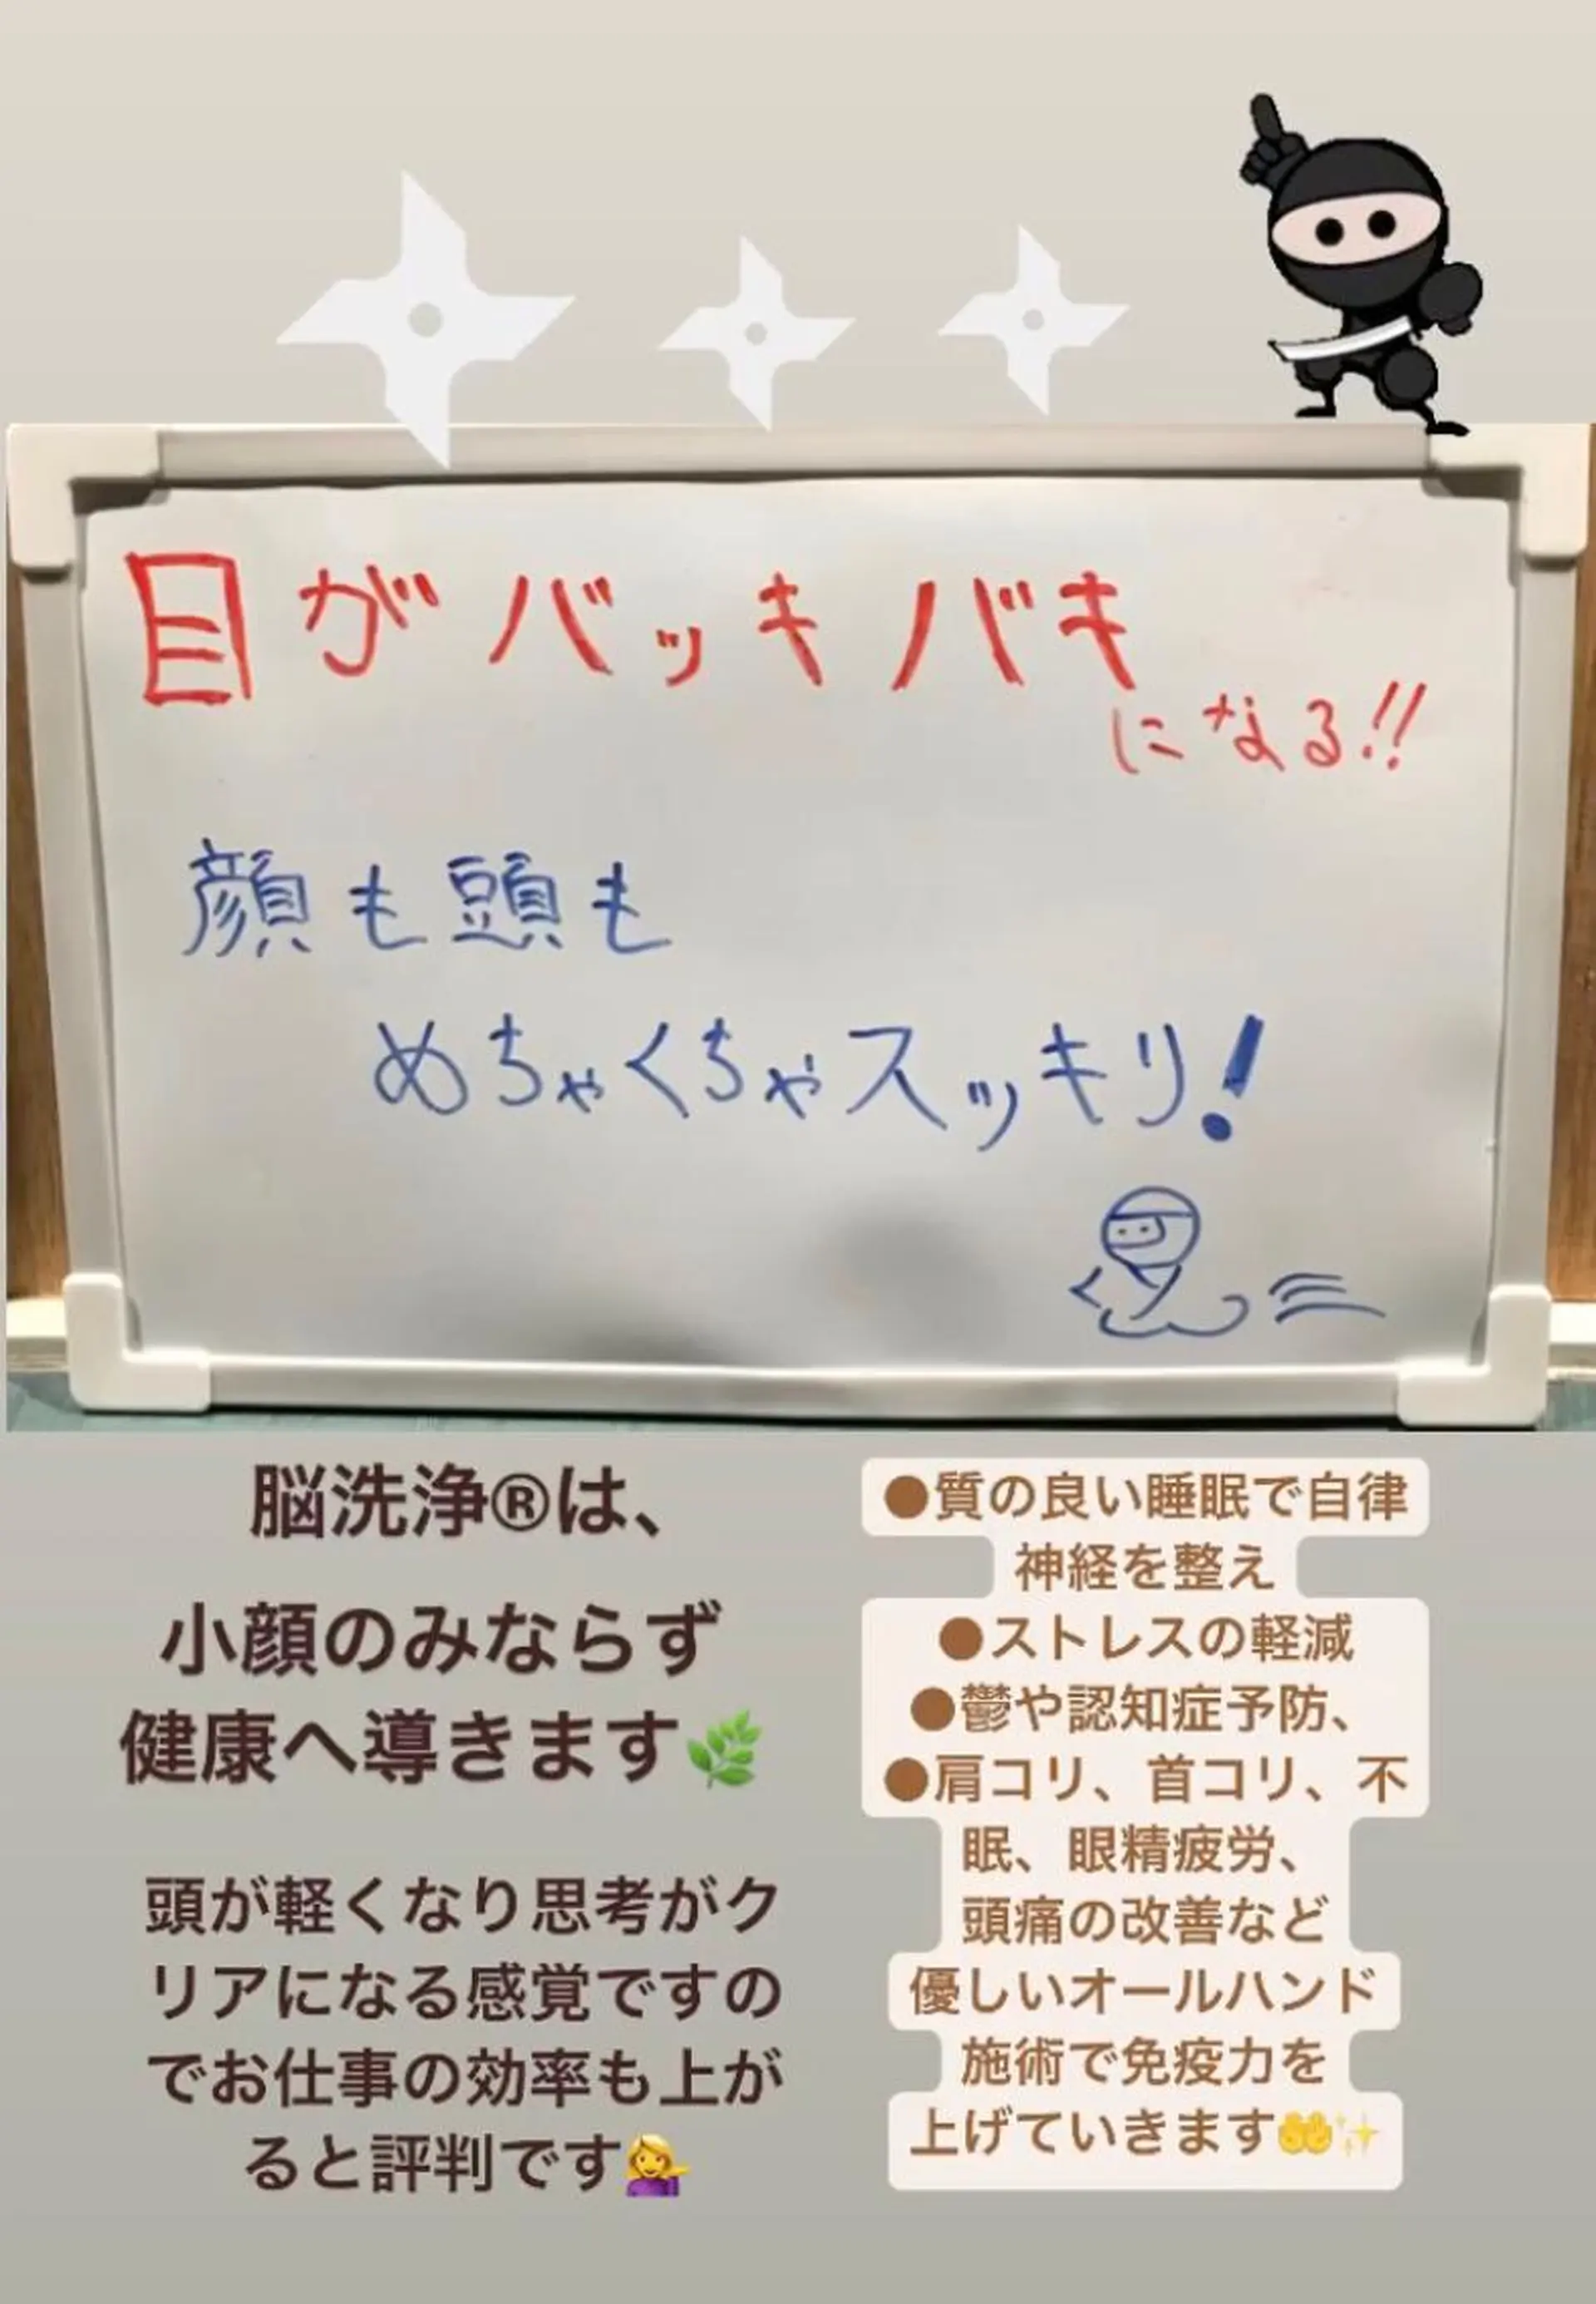 目がバッキバキ
になる!!
顔も頭も
めちゃくちゃスッキリ!
脳洗浄®は、
小顔のみならず
健康へ導きます🌿
頭が軽くなり思考がク
リアになる感覚ですの
でお仕事の効率も上が
ると評判です💁‍♀️
●質の良い睡眠で自律
神経を整え
●ストレスの軽減
●鬱や認知症予防、
●肩コリ、首コリ、不
眠、眼精疲労、
頭痛の改善など
優しいオールハンド
施術で免疫力を
上げていきます🤲✨